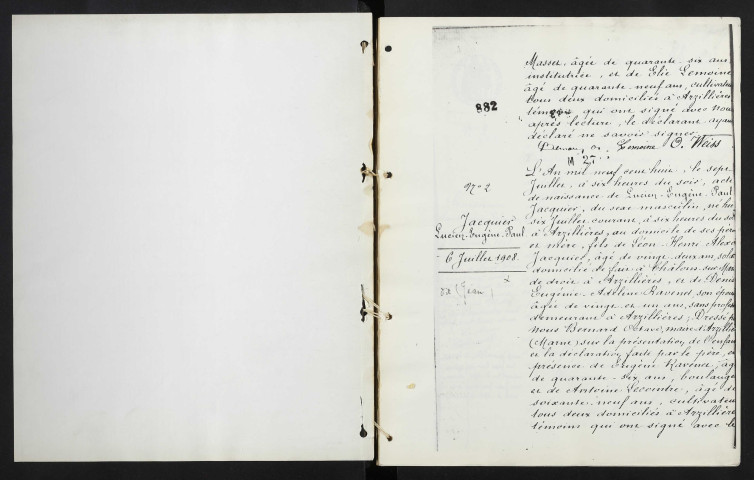 Masset, âgée de quarante-six ans,
institutrice, et de Elie Lemoine
âgé de quarante-neuf ans, cultivateu
tous deux domiciliés à Arzillières
témoins qui ont signé avec nous
après lecture, le déclarant ayan
déclaré ne savoir signer.
Lemoine O. Weiss
882
M 27
N° 2
Jacquier
Lucien-Eugène-Paul
6 Juillet 1908.
L'An mil neuf cent huit, le sept
Juillet, à six heures du soir, acte
de naissance de Lucien-Eugène-Paul
Jacquier, du sexe masculin, né hie
six Juillet courant, à six heures du so
à Arzillières, au domicile de ses père
et mère, fils de Léon-Henri
Jacquier, âgé de vingt-deux ans, sold
domicilié de fait à Châlons-sur-Mar
de droit à Arzillières, et de
Eugénie-Adeline Ravenel, son épou
âgée de vingt et un ans, sans profess
demeurant à Arzillières; Dressé p
nous Bernard Octave, maire d'Arzilliè
(Marne) sur la présentation de l'enfan
et la déclaration faite par le père, en
présence de Eugène Ravenel, âg
de quarante-six ans, boulange
et de Antoine Lecointre, âgé de
soixante-neuf ans, cultivateu
tous deux domiciliés à Arzillière
témoins qui ont signé avec le